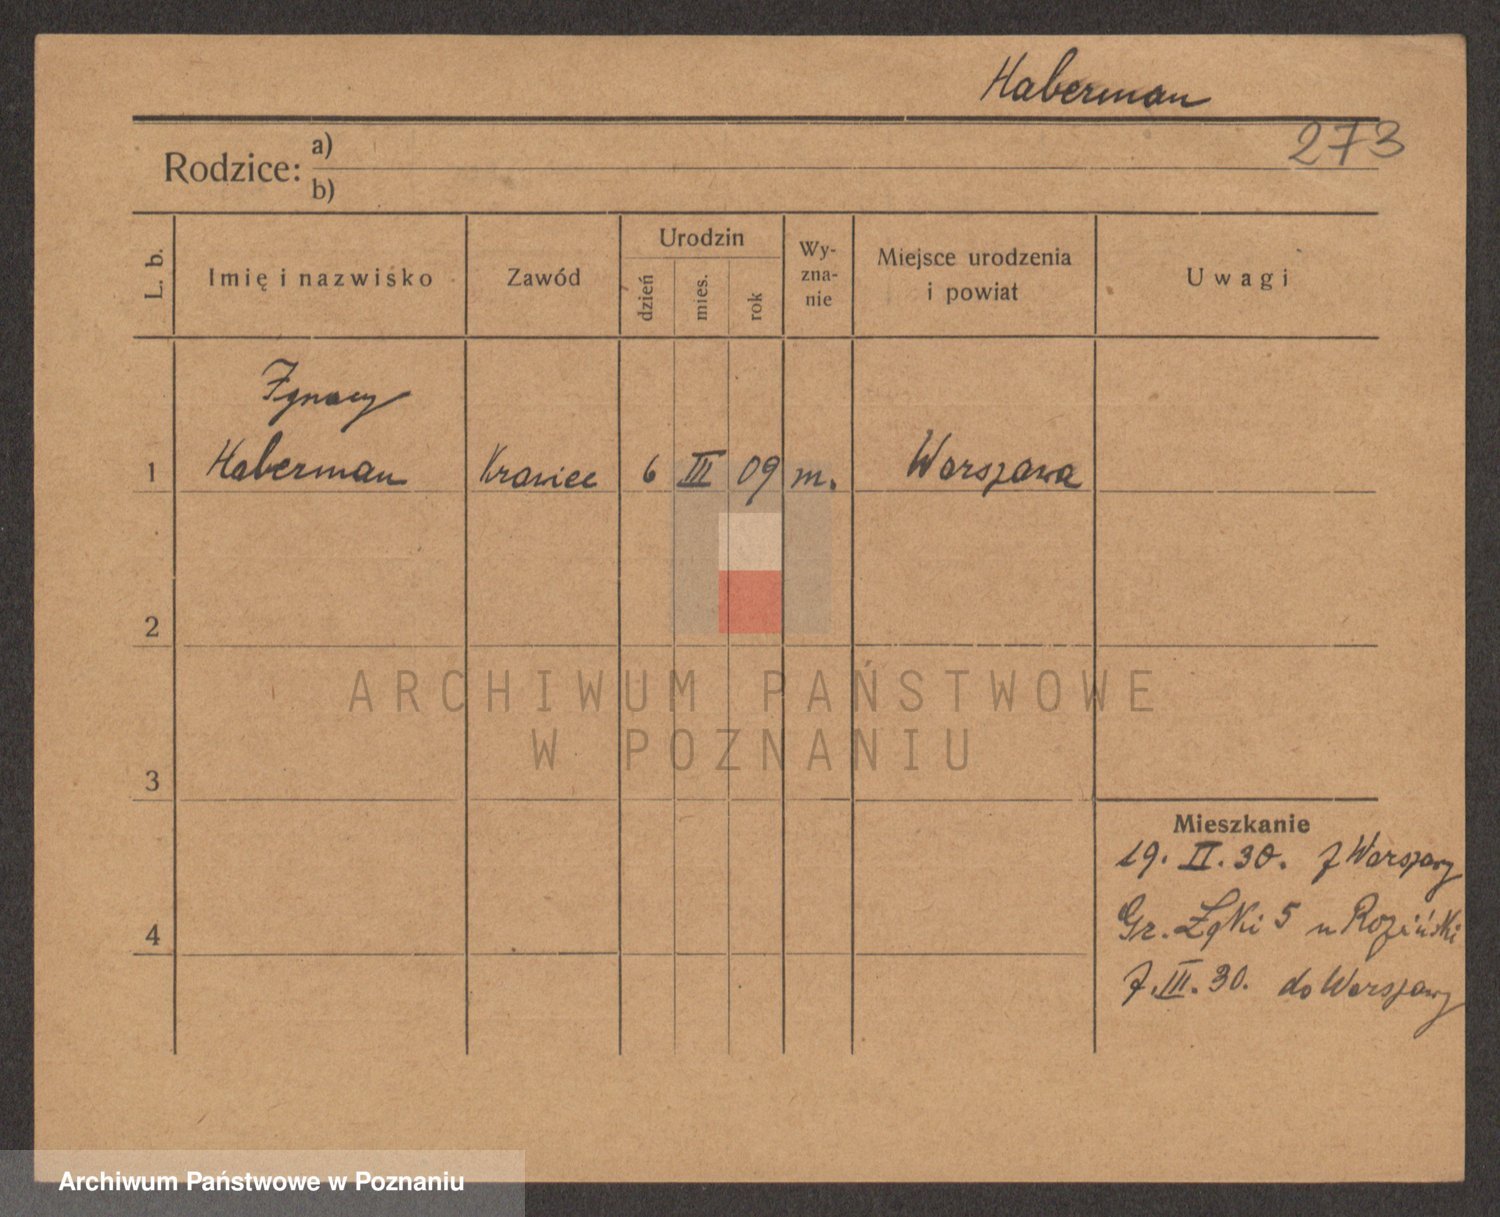 Haberman
273
Rodzice: a)
b)
L. b.
Imię i nazwisko
Zawód
Urodzin
dzień
mies.
rok
Wy-
zna-
nie
Miejsce urodzenia
i powiat
Uwagi
Ignacy
1 Haberman Krawiec 6 III 09 m. Warszawa
2
ARCHIWUM PAŃSTWOWE
W POZNANIU
3
Mieszkanie
19. II. 30. z Warszawy
Gr. Łąki 5 u Roziński
4
7. III. 30. do Warszawy
Archiwum Państwowe w Poznaniu